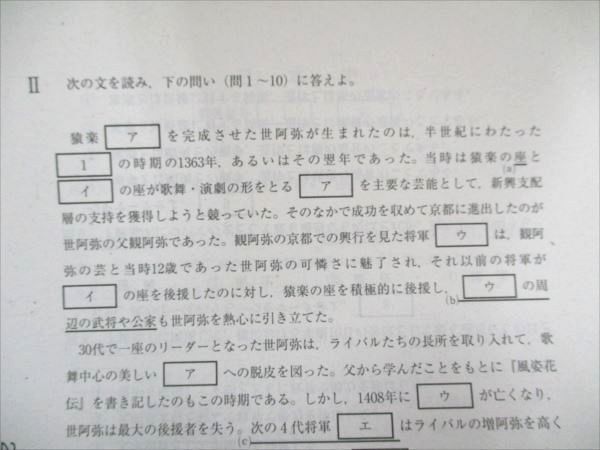 II 次の文を読み,下の問い(問1~10)に答えよ。
猿楽 ア を完成させた世阿弥が生まれたのは,半世紀にわたった
1 の時期の1363年,あるいはその翌年であった。当時は猿楽の座と
(a)
イ の座が歌舞・演劇の形をとる ア を主要な芸能として,新興支配
層の支持を獲得しようと競っていた。そのなかで成功を収めて京都に進出したのが
世阿弥の父観阿弥であった。観阿弥の京都での興行を見た将軍 ウ は,観阿
弥の芸と当時12歳であった世阿弥の可憐さに魅了され,それ以前の将軍が
イ の座を後援したのに対し,猿楽の座を積極的に後援し, ウ の周
(b)
辺の武将や公家も世阿弥を熱心に引き立てた。
30代で一座のリーダーとなった世阿弥は,ライバルたちの長所を取り入れて,歌
舞中心の美しい ア への脱皮を図った。父から学んだことをもとに『風姿花
伝』を書き記したのもこの時期である。しかし,1408年に ウ が亡くなり,
世阿弥は最大の後援者を失う。次の4代将軍 エ はライバルの増阿弥を高く
(c)